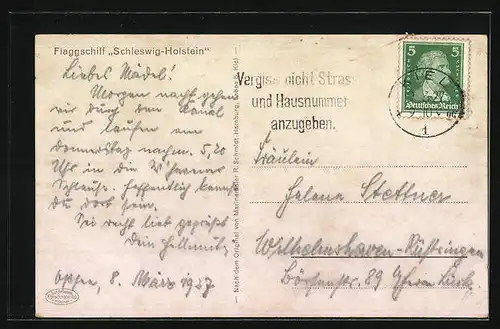 Flaggschiff „Schleswig-Holstein"
Liebes Mädel!
Morgen nacht gehen
wir durch den Kanal
und laufen am
Donnerstag nachm. 5,20
Uhr in die W'havener
Schleuse. Hoffentlich kannst
Du dort sein.
Sei recht lieb gegrüßt
Dein Hellmut.
8. März 1927
Nach dem Original von Marinemaler R. Schmidt-Hamburg, Kiel.
Vergiss nicht Strass
und Hausnummer
anzugeben.
KIEL
1
5 5
Deutsches Reich
Fräulein
Helene Stettner
Wilhelmshaven-Rüstringen
Börsenstr. 89